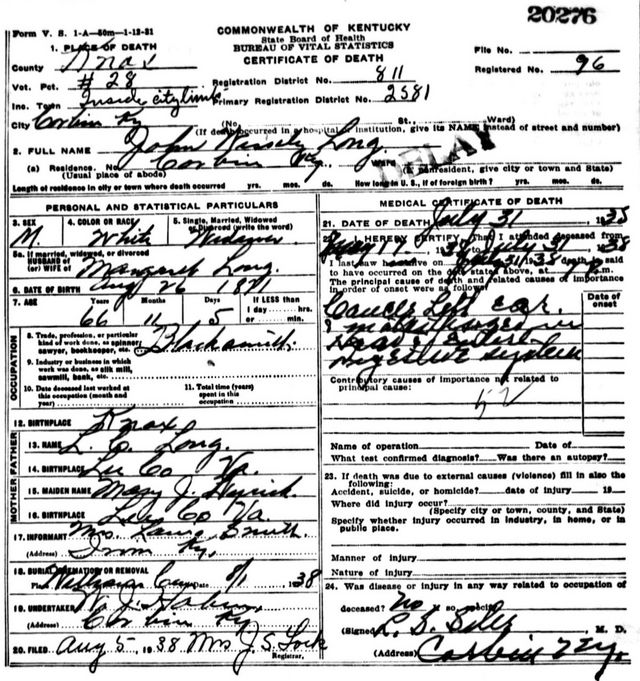 20276
Form V. S. 1-A—50m—1-12-31
COMMONWEALTH OF KENTUCKY
State Board of Health
BUREAU OF VITAL STATISTICS
CERTIFICATE OF DEATH
1. PLACE OF DEATH
County Knox
File No.
Registered No. 96
Vot. Pct. # 28
Registration District No. 811
Inc. Town Inside city limits
Primary Registration District No. 2381
City Corbin Ky
(No. St., Ward)
(If death occurred in a hospital or institution, give its NAME instead of street and number)
2. FULL NAME John Long
DELAY
(a) Residence. No. Corbin Ky. Ward
(Usual place of abode) (If nonresident, give city or town and State)
Length of residence in city or town where death occurred yrs. mos. ds. How long in U. S., if of foreign birth? yrs. mos. ds.
PERSONAL AND STATISTICAL PARTICULARS
3. SEX 4. COLOR OR RACE 5. Single, Married, Widowed or Divorced (write the word)
M. White Widower
5a. If married, widowed, or divorced
HUSBAND of
(or) WIFE of Margaret Long
6. DATE OF BIRTH Aug 26 1871
7. AGE Years Months Days If LESS than
1 day hrs.
or min.
66 11 5
OCCUPATION
8. Trade, profession, or particular kind of work done, as spinner, sawyer, bookkeeper, etc. Blacksmith.
9. Industry or business in which work was done, as silk mill, sawmill, bank, etc.
10. Date deceased last worked at this occupation (month and year)
11. Total time (years) spent in this occupation
12. BIRTHPLACE Knox
FATHER
13. NAME L. C. Long.
14. BIRTHPLACE Lee Co Va.
MOTHER
15. MAIDEN NAME Mary J.
16. BIRTHPLACE Lee Co Va.
17. INFORMANT Mrs. Smith
(Address) Ky.
18. BURIAL CREMATION OR REMOVAL
Place Date 8/1 1938
19. UNDERTAKER
(Address) Corbin Ky
20. FILED Aug 5 1938 Mrs J. S. Lock
Registrar.
MEDICAL CERTIFICATE OF DEATH
21. DATE OF DEATH July 31 1938
22. I HEREBY CERTIFY, That I attended deceased from
1938 to July 31 1938
I last saw h alive on July 31 1938 death is said
to have occurred on the date stated above, at m.
The principal cause of death and related causes of importance in order of onset were as follows:
Date of onset
Cancer Left ear
digestive system
Contributory causes of importance not related to principal cause:
Name of operation Date of
What test confirmed diagnosis? Was there an autopsy?
23. If death was due to external causes (violence) fill in also the following:
Accident, suicide, or homicide? date of injury 19
Where did injury occur?
(Specify city or town, county, and State)
Specify whether injury occurred in industry, in home, or in public place.
Manner of injury
Nature of injury
24. Was disease or injury in any way related to occupation of
deceased? No If so specify
(Signed) M. D.
(Address) Corbin Ky.